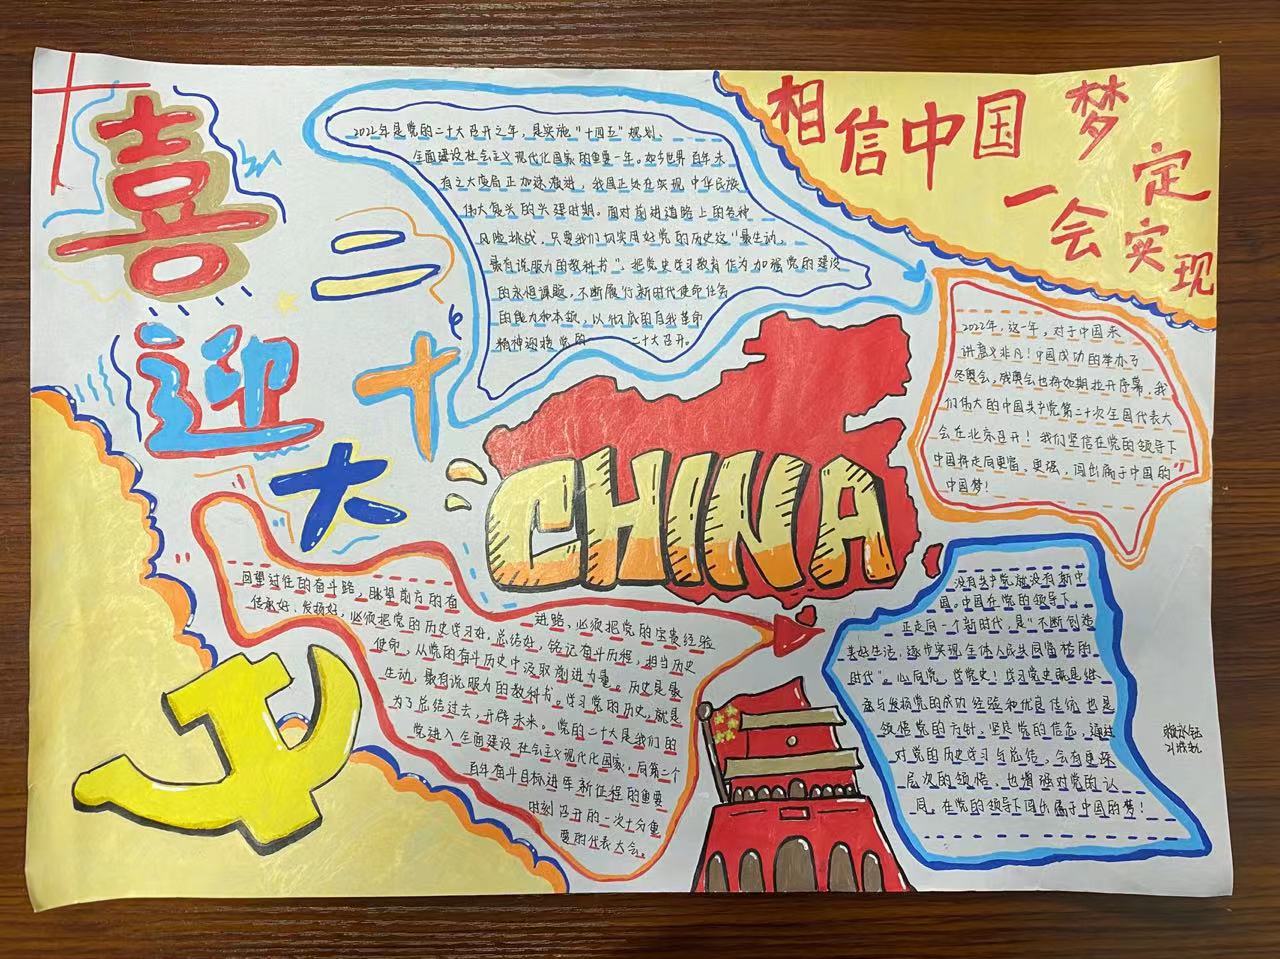 喜
迎
二
十
大
相信中国梦
一定会实现
2022年是党的二十大召开之年，是实施“十四五”规划、
全面建设社会主义现代化国家的重要一年。如今世界百年未
有之大变局正加速演进，我国正处在实现中华民族
伟大复兴的关键时期。面对前进道路上的各种
风险挑战，只要我们切实用好党的历史这“最生动，
最有说服力的教科书”，把党史学习教育作为加强党的建设
的永恒课题，不断履行新时代使命任务
的能力和本领，以彻底的自我革命
精神迎接党的二十大召开。
CHINA
2022年，这一年，对于中国来
讲意义非凡！中国成功的举办了
冬奥会，残奥会也将如期拉开序幕，我
们伟大的中国共产党第二十次全国代表大
会在北京召开！我们坚信在党的领导下
中国将走向更富，更强，闯出属于中国的“
中国梦！
回望过往的奋斗路，眺望前方的奋
进路、必须把党的宝贵经验
传承好、发扬好，必须把党的历史学习好，总结好，铭记奋斗历程，担当历史
使命，从党的奋斗历史中汲取前进力量。历史是最
生动，最有说服力的教科书。学习党的历史，就是
为了总结过去，开辟未来。党的二十大是我们的
党进入全面建设社会主义现代化国家，向第二个
百年奋斗目标进军新征程的重要
时刻召开的一次十分重
要的代表大会。
没有共产党就没有新中
国。中国在党的领导下，
正走向一个新时代，是“不断创造
美好生活，逐步实现全体人民共同富裕的
时代”。心向党，感党史！学习党史就是继
承与发扬党的成功经验和优良传统也是
领悟党的方针，坚定党的信念，通过
对党的历史学习与总结，会有更深
层次的领悟，也增强对党的认
同。在党的领导下闯出属于中国的梦！